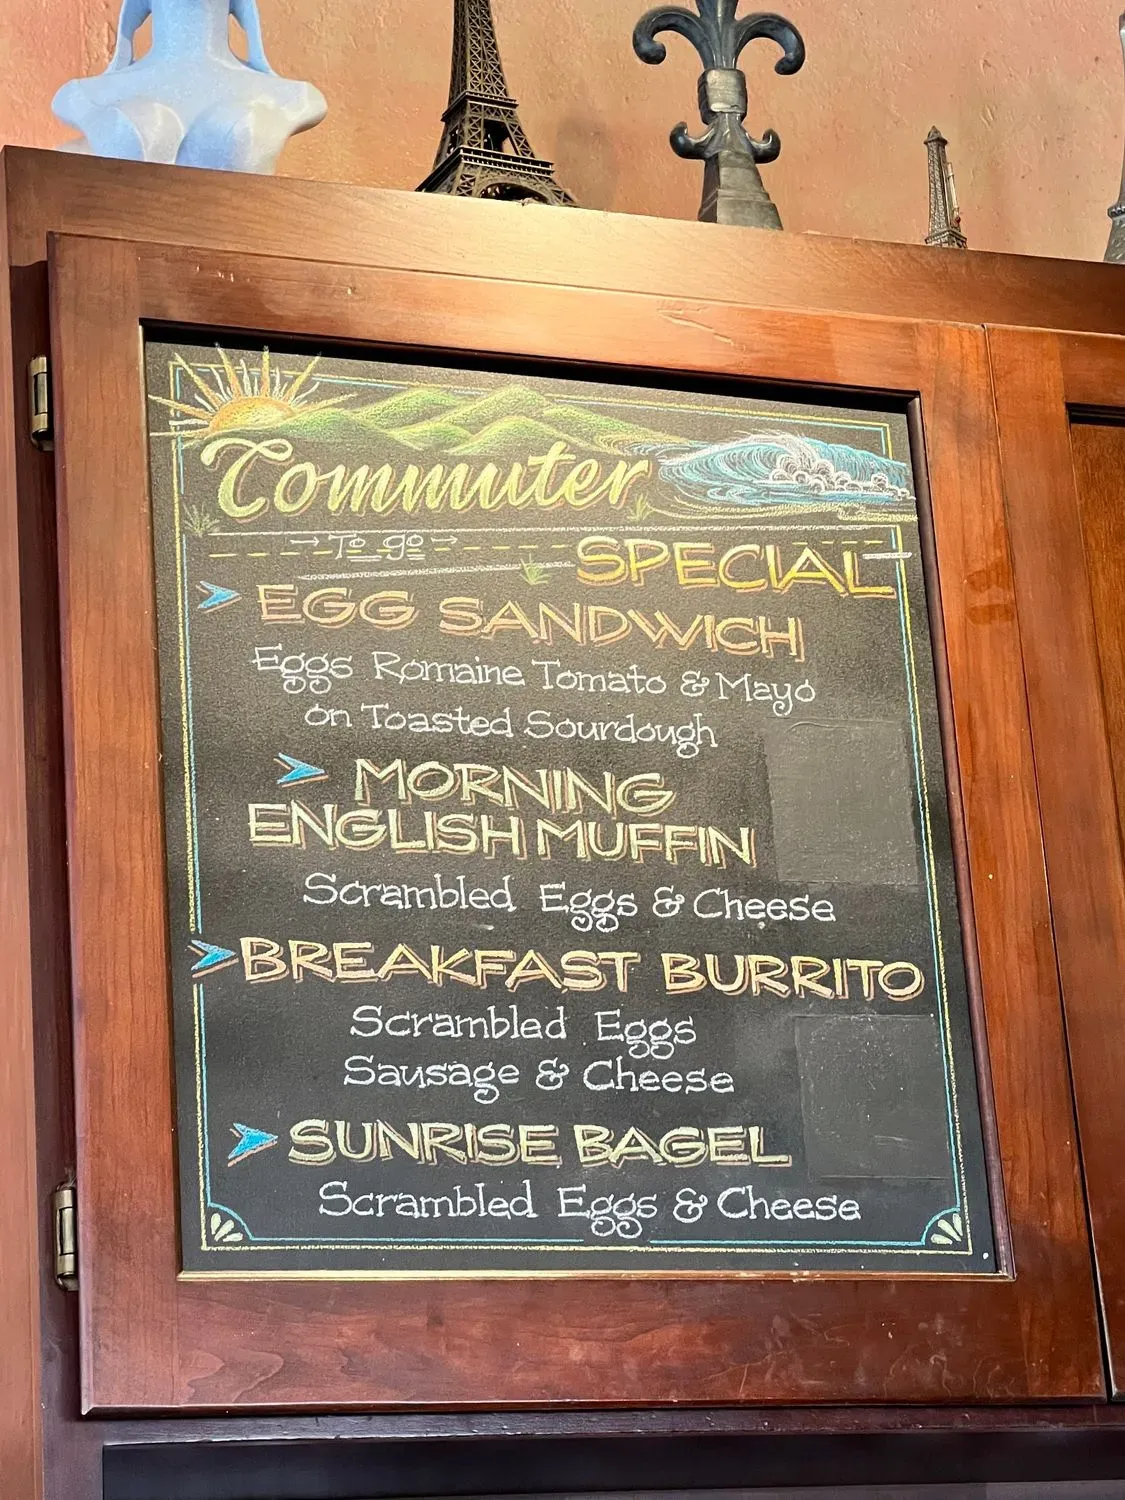 Commuter
To go
SPECIAL
EGG SANDWICH
Eggs Romaine Tomato & Mayo
on Toasted Sourdough
MORNING
ENGLISH MUFFIN
Scrambled Eggs & Cheese
BREAKFAST BURRITO
Scrambled Eggs
Sausage & Cheese
SUNRISE BAGEL
Scrambled Eggs & Cheese